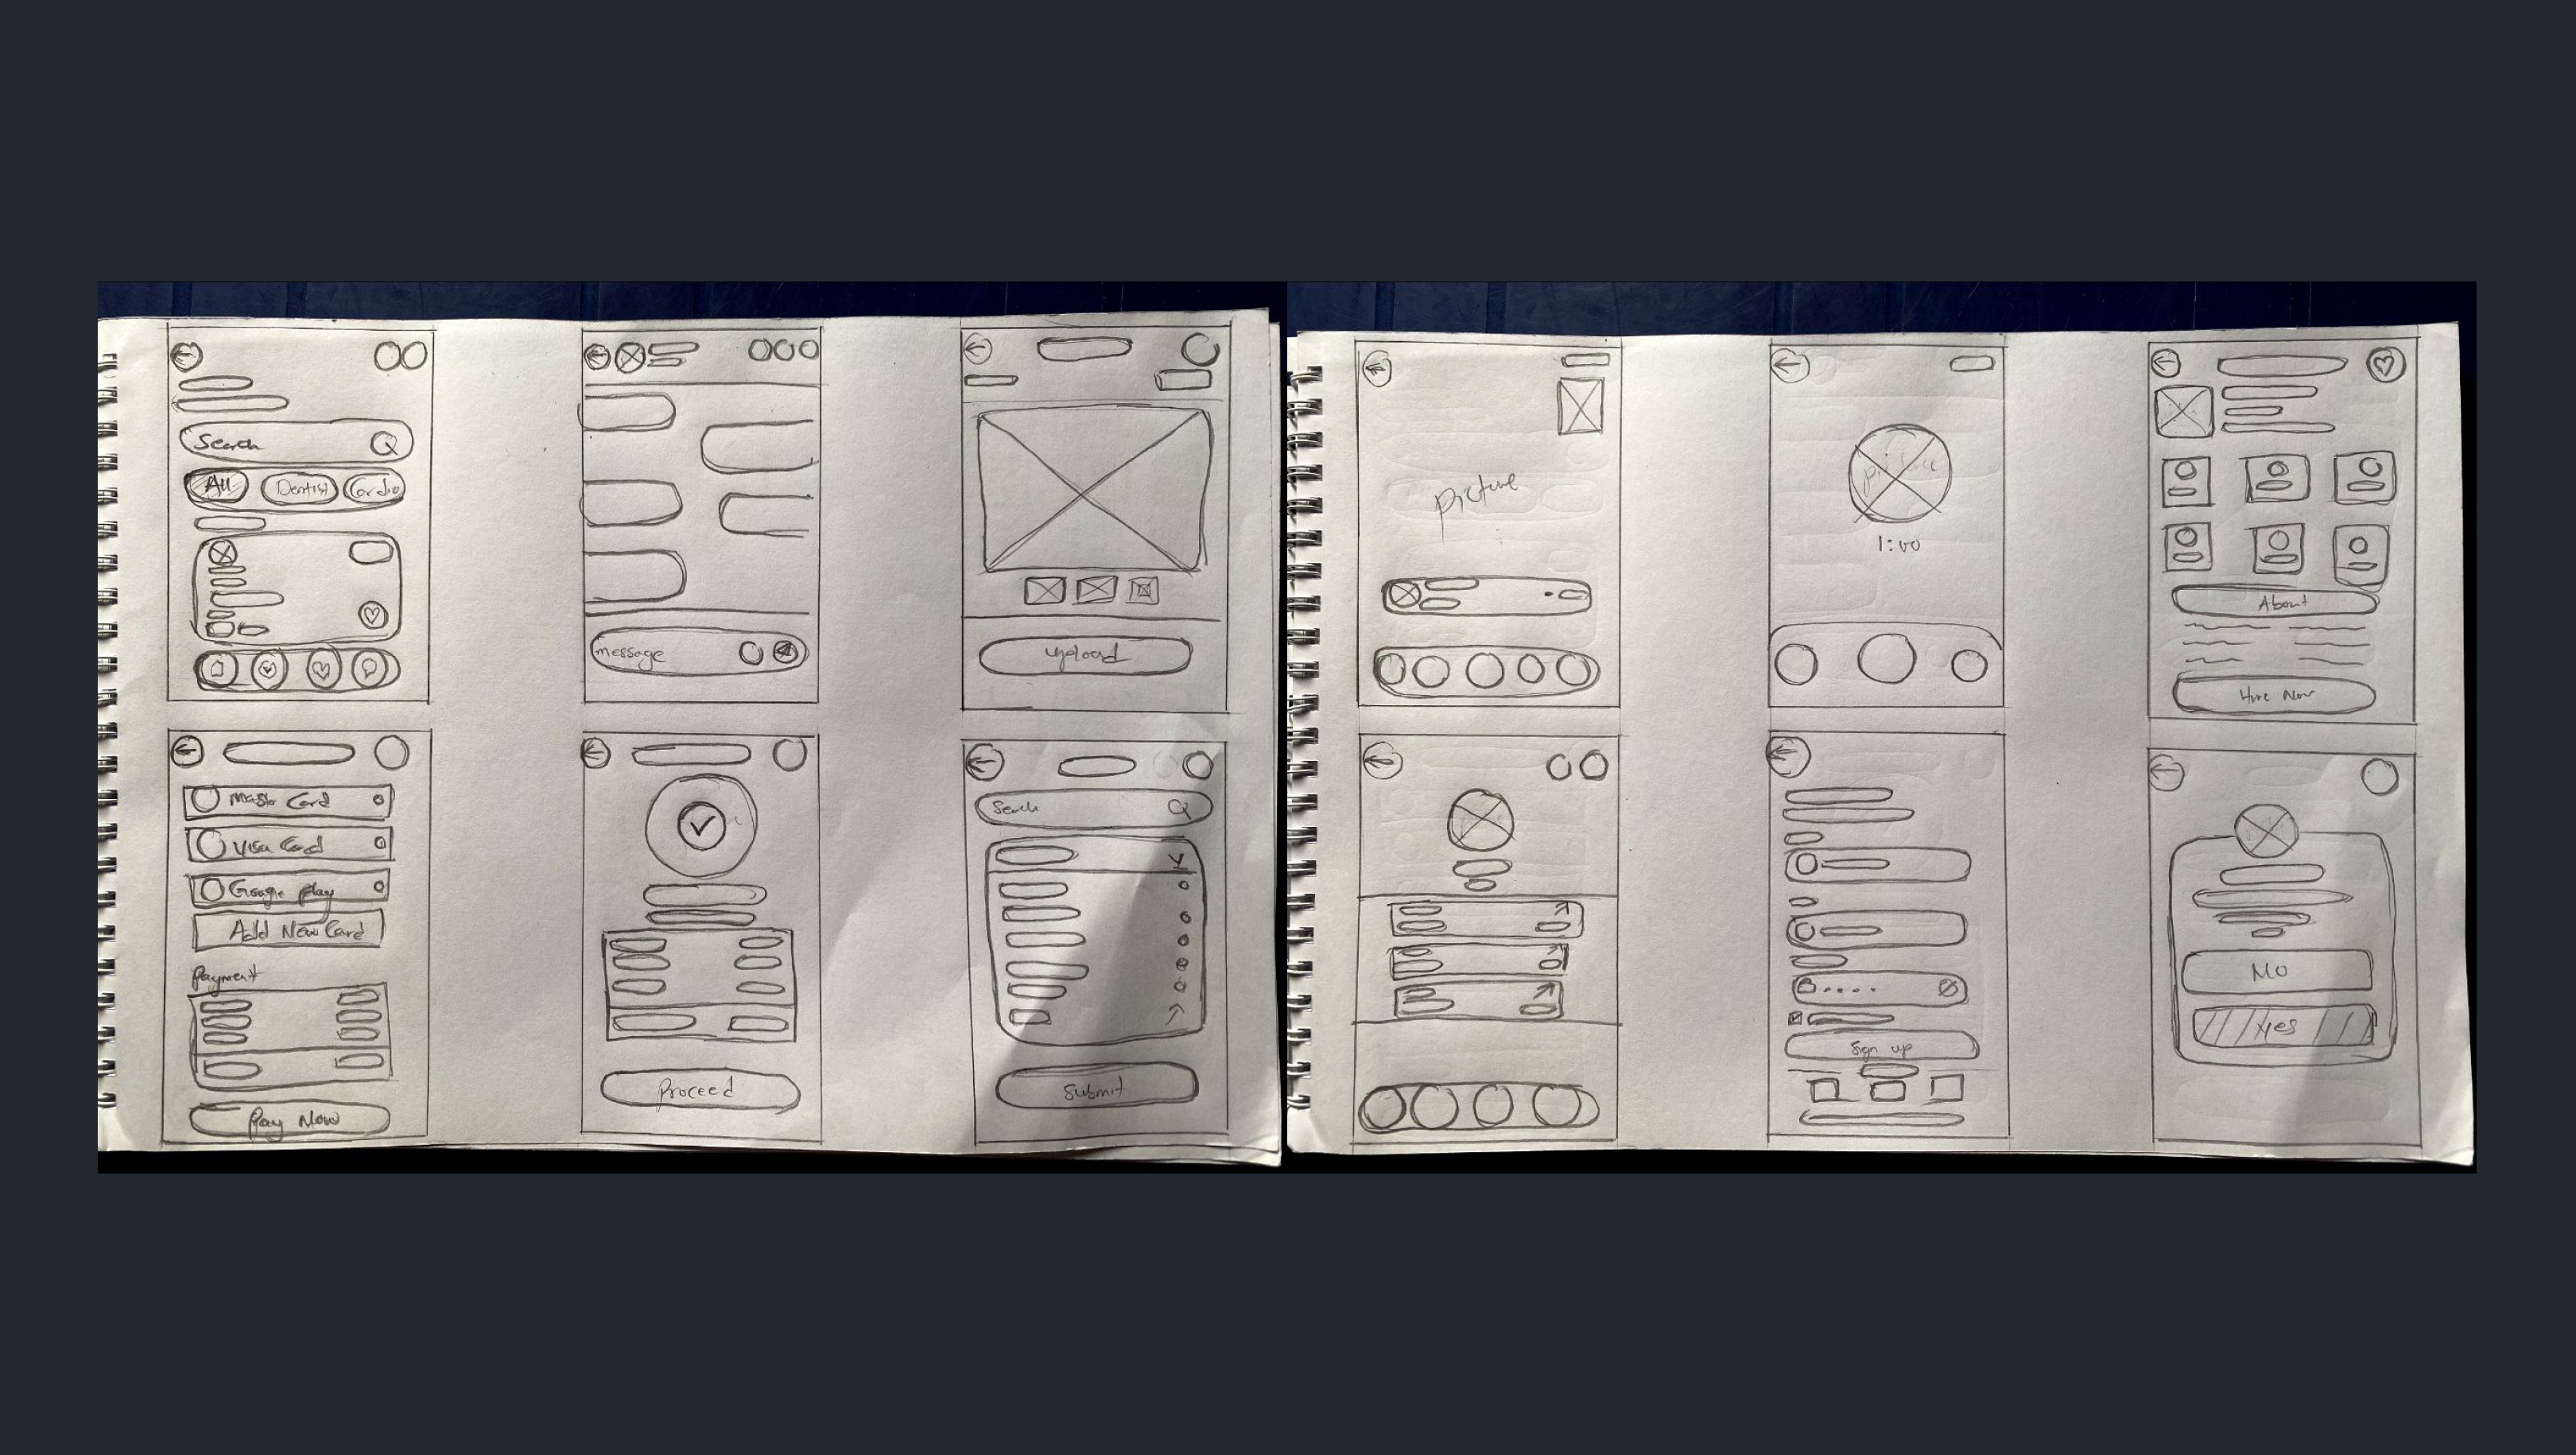 Search
All Dentist Cardio
message
Upload
Master Card
Visa Card
Google play
Add New Card
Payment
Pay Now
Proceed
Search
Submit
picture
1:00
About
Hire Now
Sign up
No
Yes